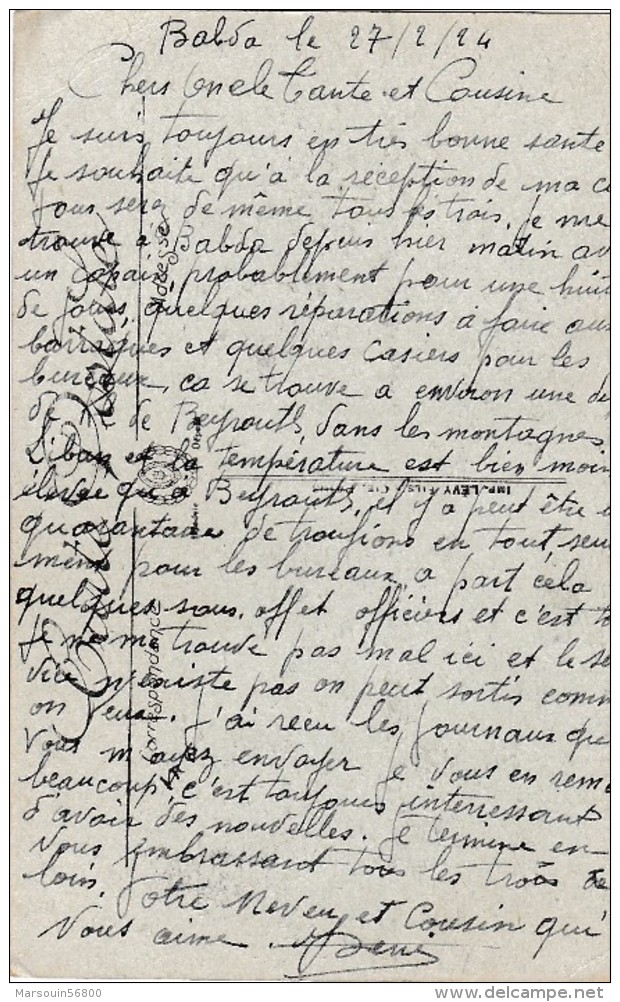 Babda le 27/2/24
Chers Oncle Tante et Cousine
Je suis toujours en très bonne sante
Je souhaite qu'à la réception de ma c
Vous serez de même tous les trois, je me
trouve à Babda depuis hier matin av
un copain, probablement pour une huit
de jours, quelques réparations à faire aux
barraques et quelques casiers pour les
bureaux, ca se trouve a environ une di
de K de Beyrouth, dans les montagnes
Liban et la température est bien moin
élevée qu'à Beyrouth, il y a peut être u
quarantaine de troufions en tout, seul
ment pour les bureaux a part cela
quelques sous. off et officiers et c'est to
Je ne me trouve pas mal ici et le se
vice n'existe pas on peut sortir comm
on veux. J'ai recu les journaux que
vous m'ayez envoyer je vous en reme
beaucoup, c'est toujours interressant
d'avoir des nouvelles. Je termine en
vous embrassant tous les trois de
loin. Votre Neveu et Cousin qui
Vous aime. René
Carte Postale
Correspondance
Adresse
IMP. LÉVY FILS
Marsouin56800
delcampe.net